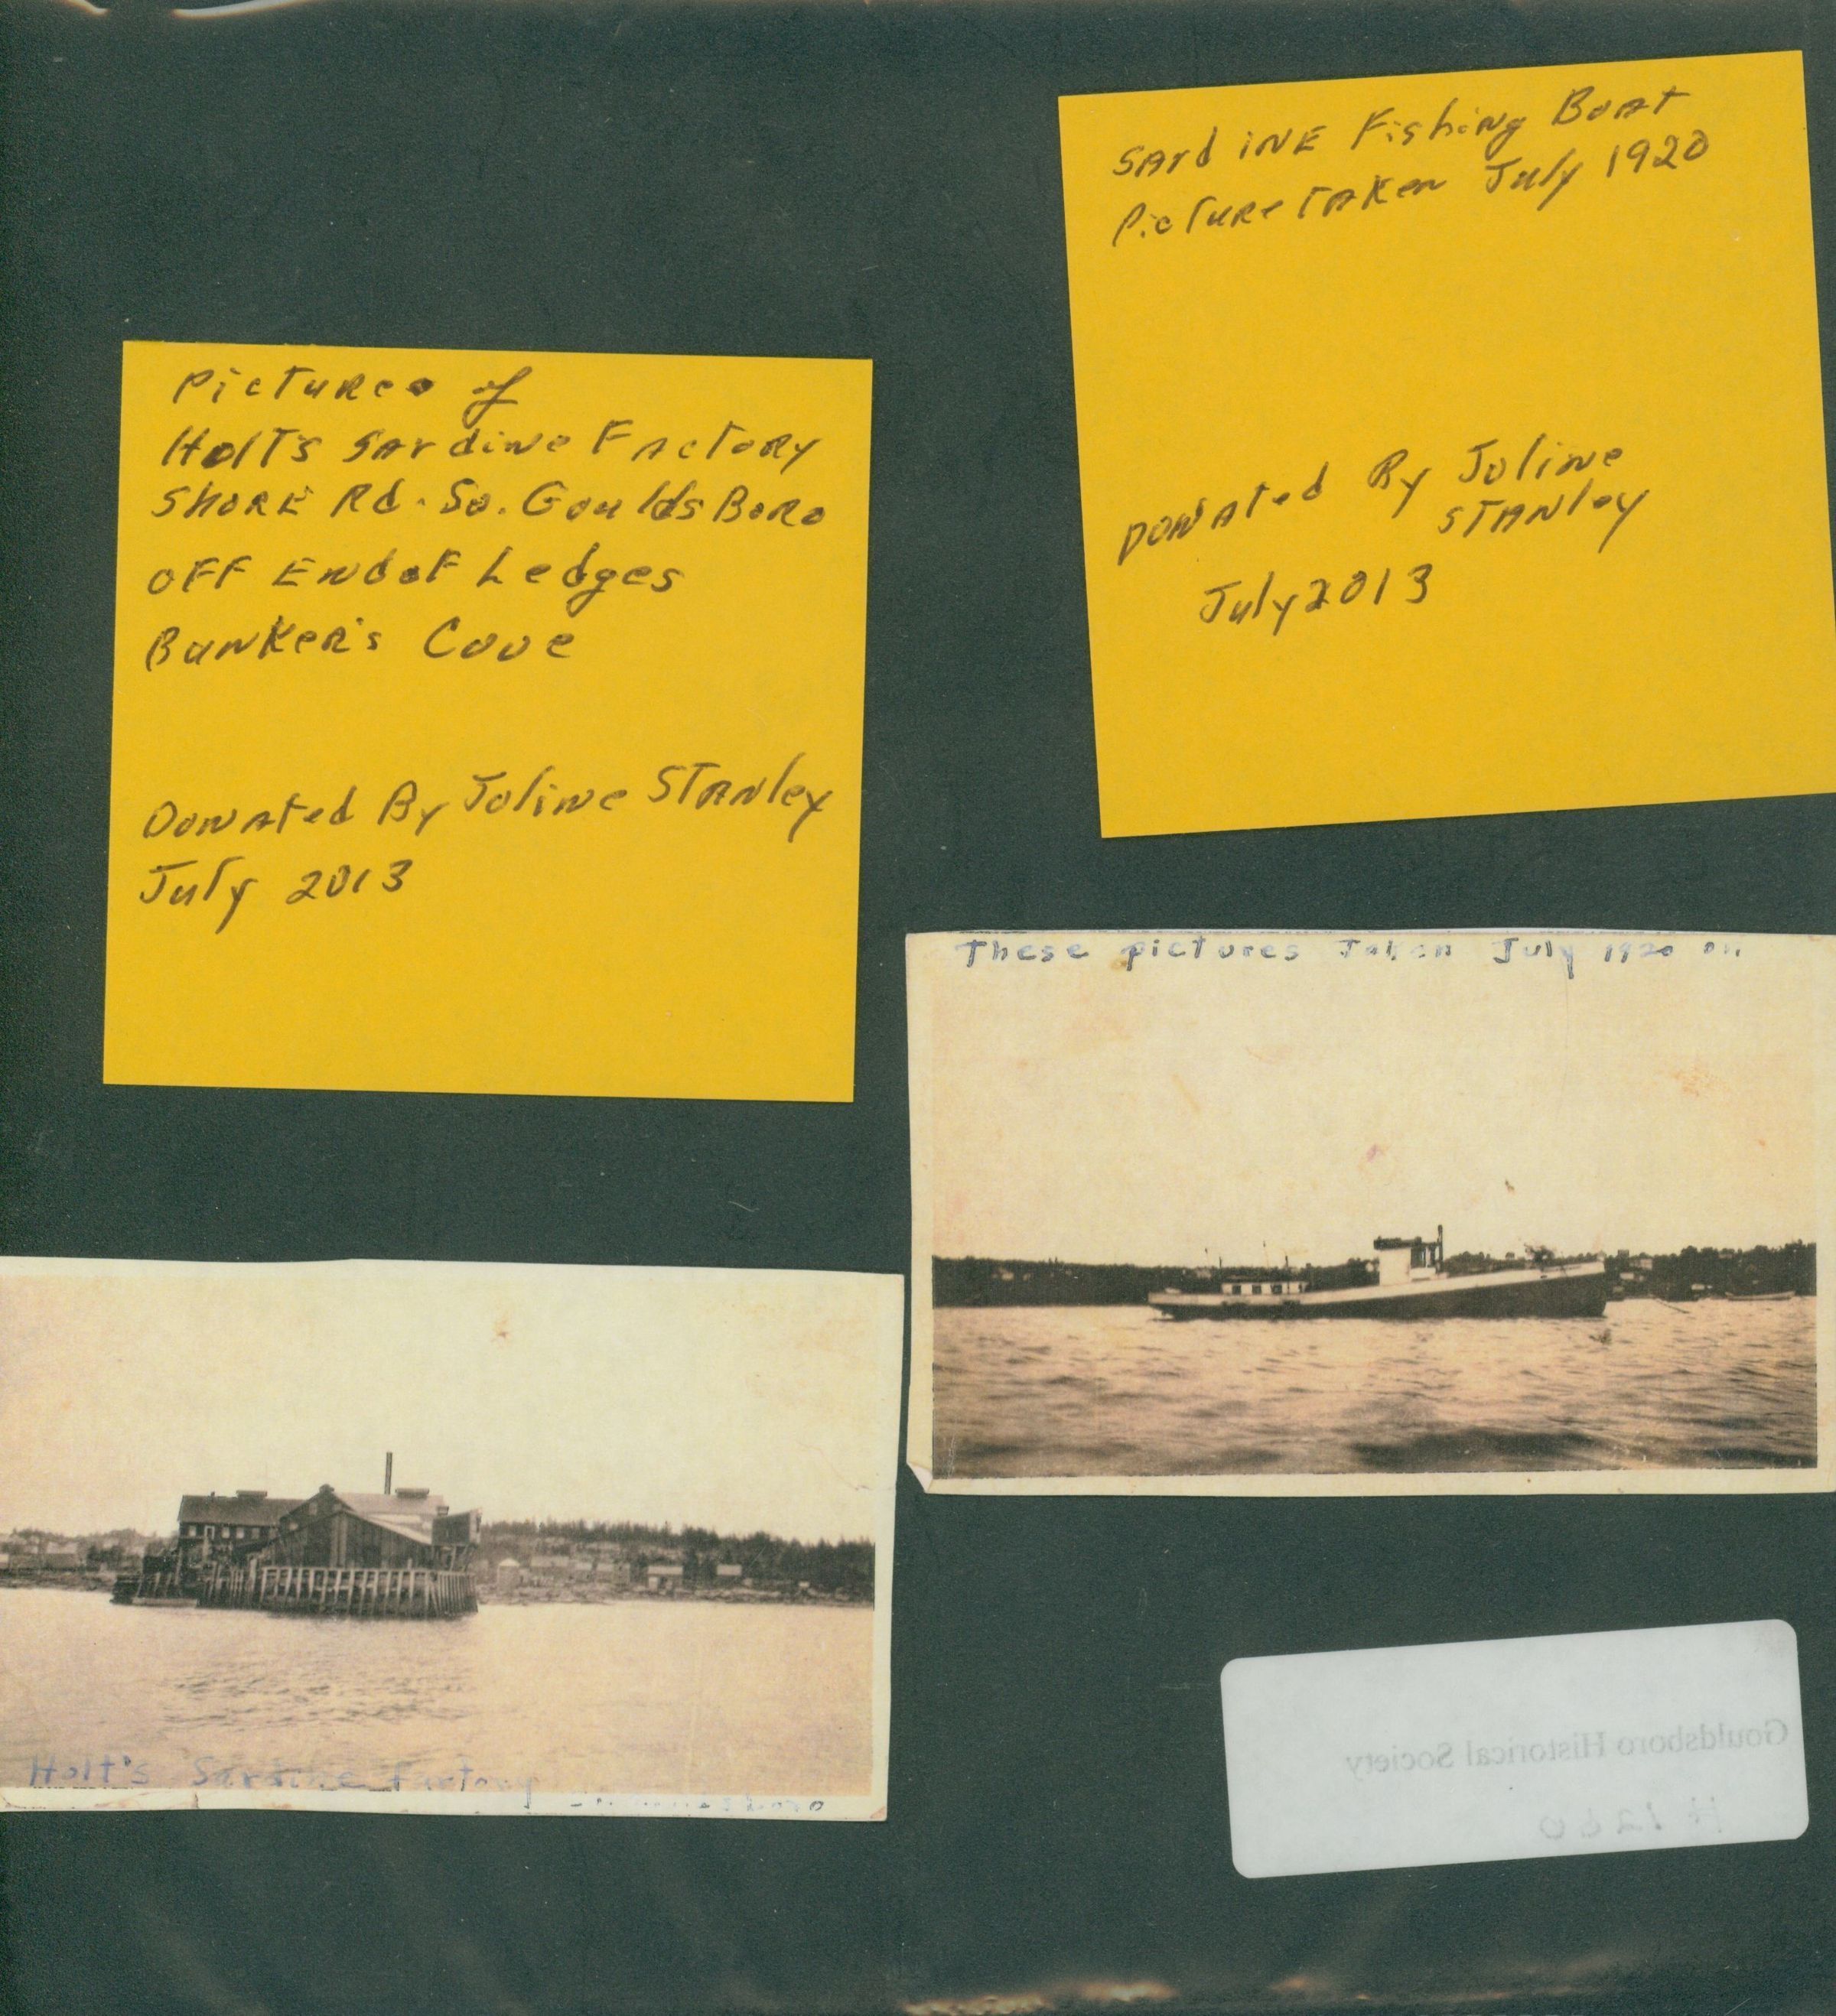 Pictures of
Holt's Sardine Factory
Shore Rd. So. Gouldsboro
OFF End of Ledges
Bunker's Cove
Donated By Joline Stanley
July 2013
Sardine Fishing Boat
Picture Taken July 1920
Donated By Joline
Stanley
July 2013
These pictures Taken July 1920 on
Holt's Sardine Factory
Gouldsboro Historical Society